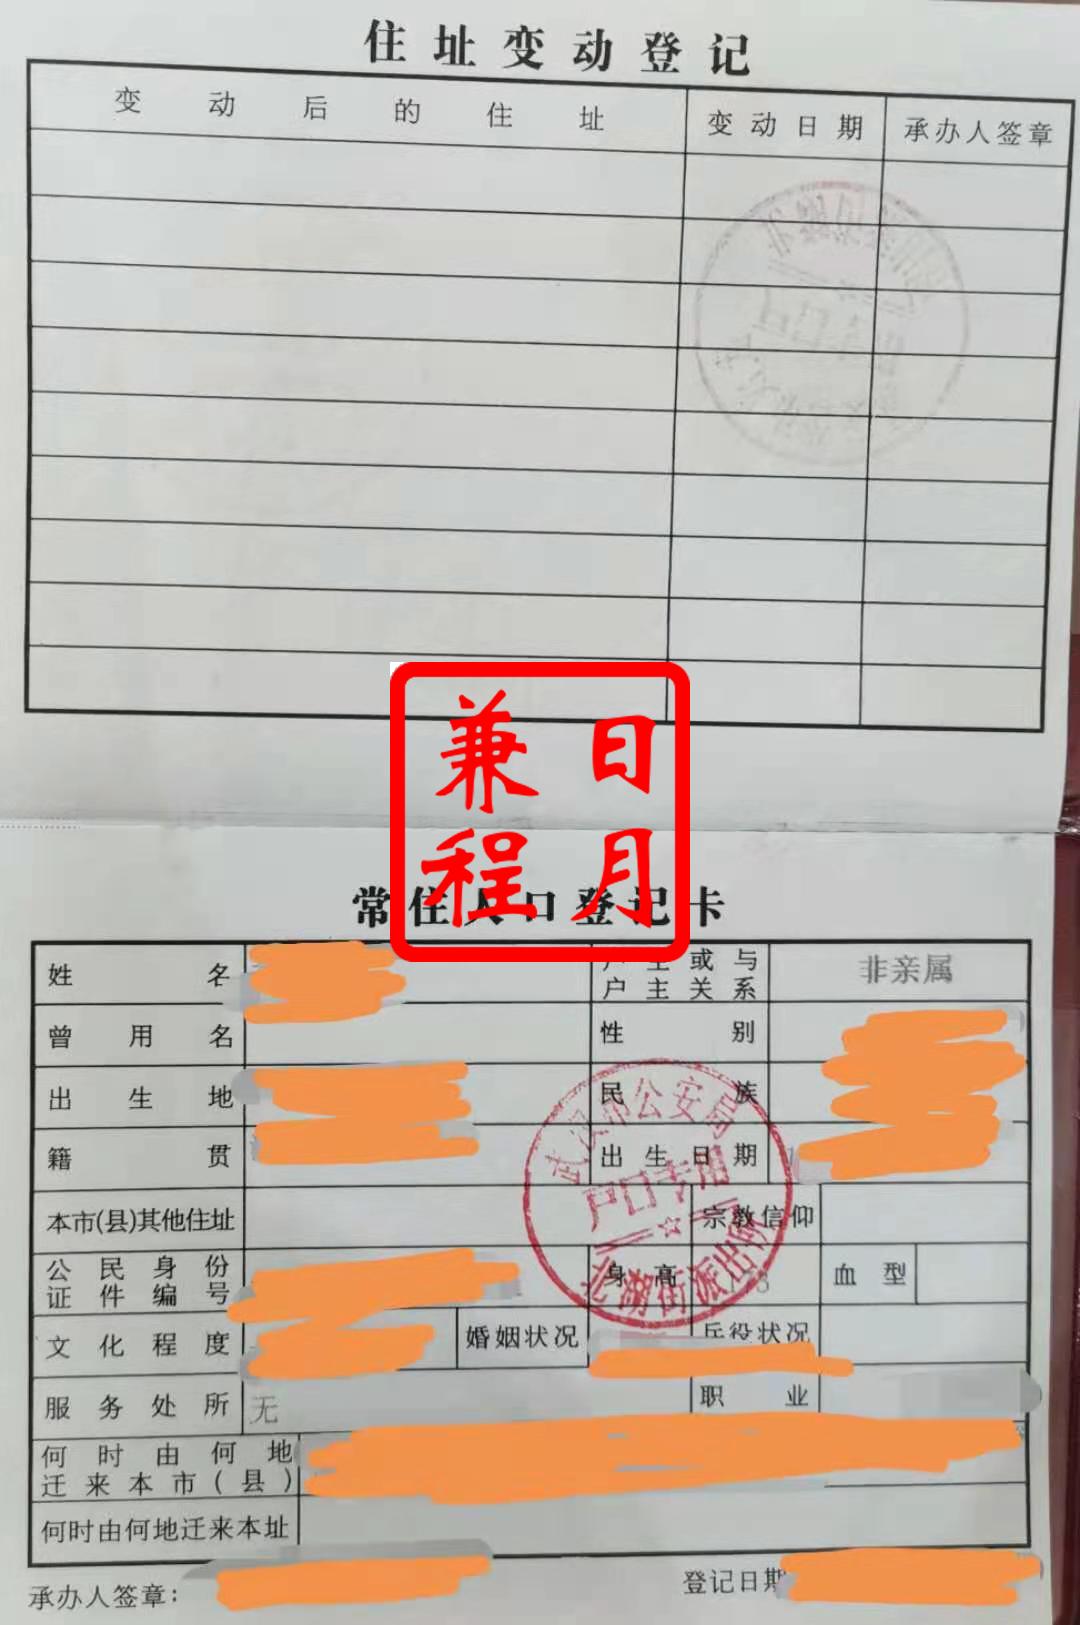 住址变动登记
变动后的住址 变动日期 承办人签章
日月
兼程
常住人口登记卡
姓名 户主或与户主关系 非亲属
曾用名 性别
出生地 民族
籍贯 出生日期
本市(县)其他住址 宗教信仰
公民身份证件编号 身高 血型
文化程度 婚姻状况 兵役状况
服务处所 无 职业
何时由何地迁来本市(县)
何时由何地迁来本址
承办人签章: 登记日期
武汉市公安局
户口专用
北湖街派出所